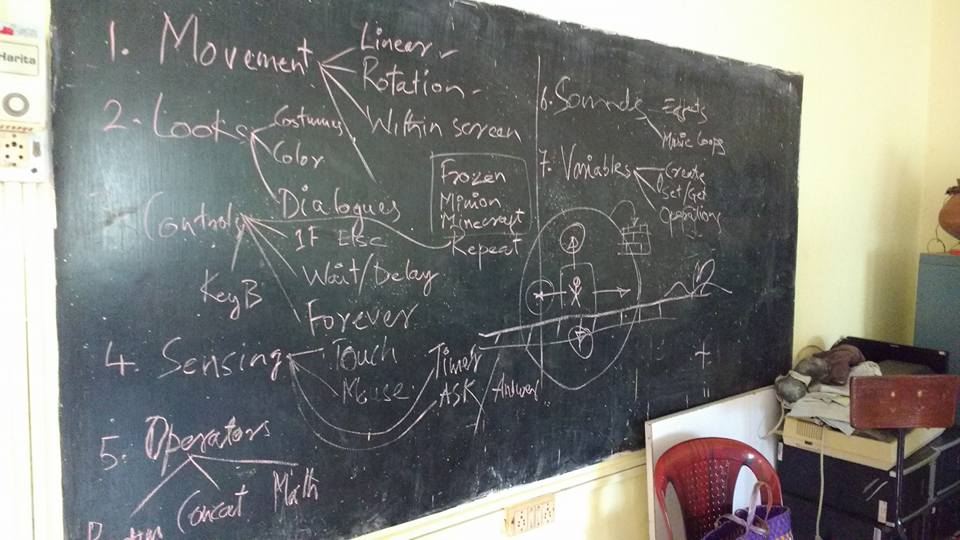 Harita
1. Movement
Linear
Rotation
Within screen
2. Looks
Costumes
Color
Dialogues
Control
IF Else
Repeat
Wait/Delay
KeyB
Forever
Frozen
Minion
Minecraft
4. Sensing
Touch
Mouse
Timer
ASK / Answer
5. Operators
Concat
Math
6. Sounds
Effects
Music Loops
7. Variables
Create
Set/Get
Operations